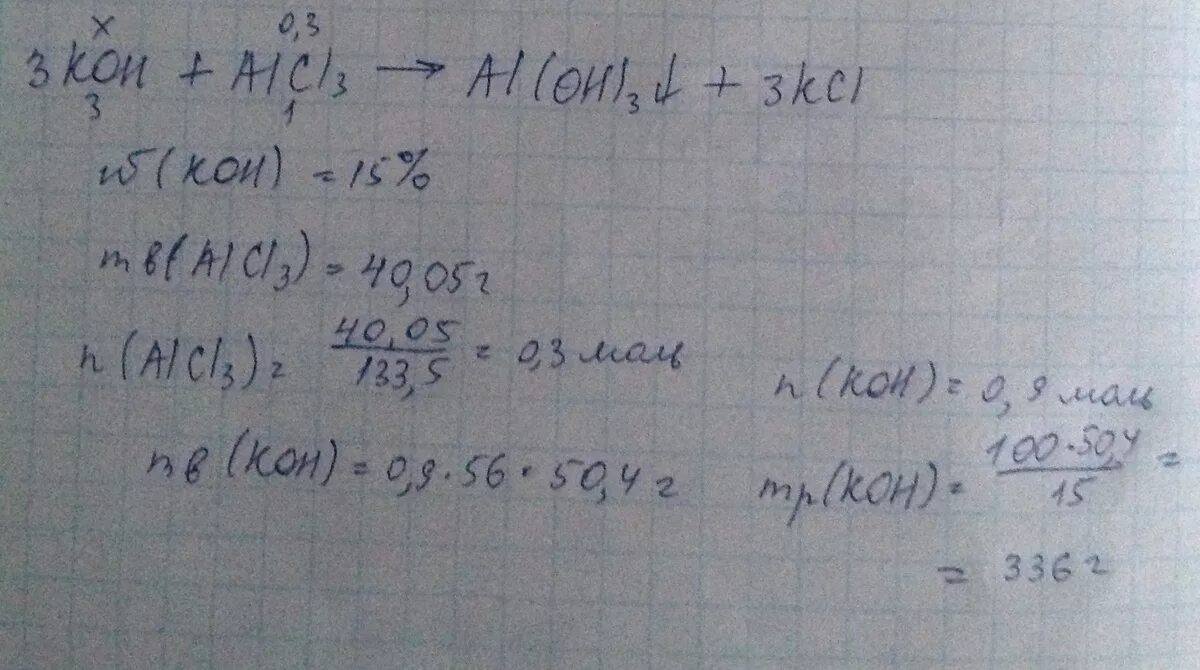 x 0,3
3KOH + AlCl3 → Al(OH)3↓ + 3KCl
3 1
ω(KOH) = 15%
mв(AlCl3) = 40,05г
n(AlCl3) = 40,05/133,5 = 0,3 моль
n(KOH) = 0,9 моль
mв(KOH) = 0,9·56 · 50,4 г
mр(KOH) = 100·50,4/15 =
= 336 г